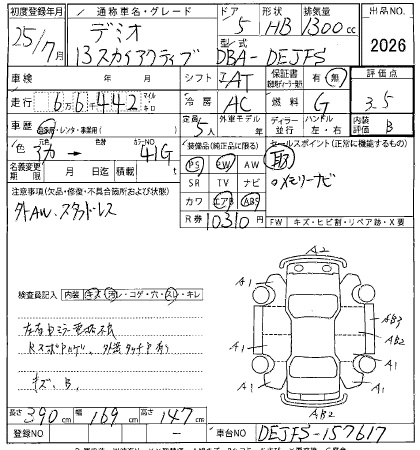 初度登録年月 通称車名・グレード ドア 形状 排気量 出品NO.
25/7月 デミオ 5 HB 1300cc
13スカイアクティブ 型式 DBA-DEJFS 2026
車検 年 月 シフト IAT 保証書 有 無 評価点
走行 6万6千442 マイル キロ 冷房 AC 燃料 G 3.5
車歴 自家用・レンタ・事業用( ) 定員 5人 外車モデル 年 ディーラー 並行 ハンドル 左・右 内装評価 B
色 色替 カラーNO 41G 装備品(純正品に限る) セールスポイント(正常に機能するもの)
名義変更期限 月 日迄 積載 t PS PW AW 取
注意事項(欠品・修復・不具合箇所および状態) SR TV ナビ ○メモリーナビ
外AW、スタッドレス カワ エアB ABS
R券 10310円 FW キズ・ヒビ割・リペア跡・X要
A2
検査員記入 内装 キズ・汚レ・コゲ・穴・スレ・キレ A1 A1
左右ミラー電格不良 AB3
AB2
キズ、B. A1 A1
長さ 390cm 幅 169cm 高さ 147cm A1 AB2
登録NO ー 車台NO DEJFS-157617